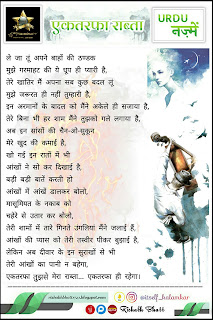 एकतरफ़ा राब्ता
URDU
नज़्में
ले जा तू अपने बाहों की ठण्डक
मुझे गरमाहट की ये धूप ही प्यारी है,
तेरे खातिर मैं अपना सब कुछ बदल लूं
मुझे जरूरत ही नहीं तुम्हारी है,
इन अरमानों के बादल को मैंने अकेले ही सजाया है,
तेरे बिना भी हर शाम मैंने तुझको गले लगाया है,
अब इन सांसों की चैन-ओ-सुकून
मेरे खुद की कमाई है,
खो गई इन रातों में भी
आंखों ने सो कर दिखाई है,
बड़ी बड़ी बातें करती हो
आंखों में आंखें डालकर बोलो,
मासूमियत के नकाब को
चहेरे से उतार कर बोलो,
तेरी शामों में तारे गिनते उंगलियां मैंने जलाई हैं,
आंखों की प्यास को तेरी तस्वीर पीकर बुझाई है,
लेकिन अब दीवार के इन सुराखों से भी
तेरी आंखों का पानी न बहेगा,
एकतरफा तुझसे मेरा राब्ता... एकतरफा ही रहेगा।
rishabhbhatt.blogspot.com
@iself_kalamkar
Rishabh Bhatt